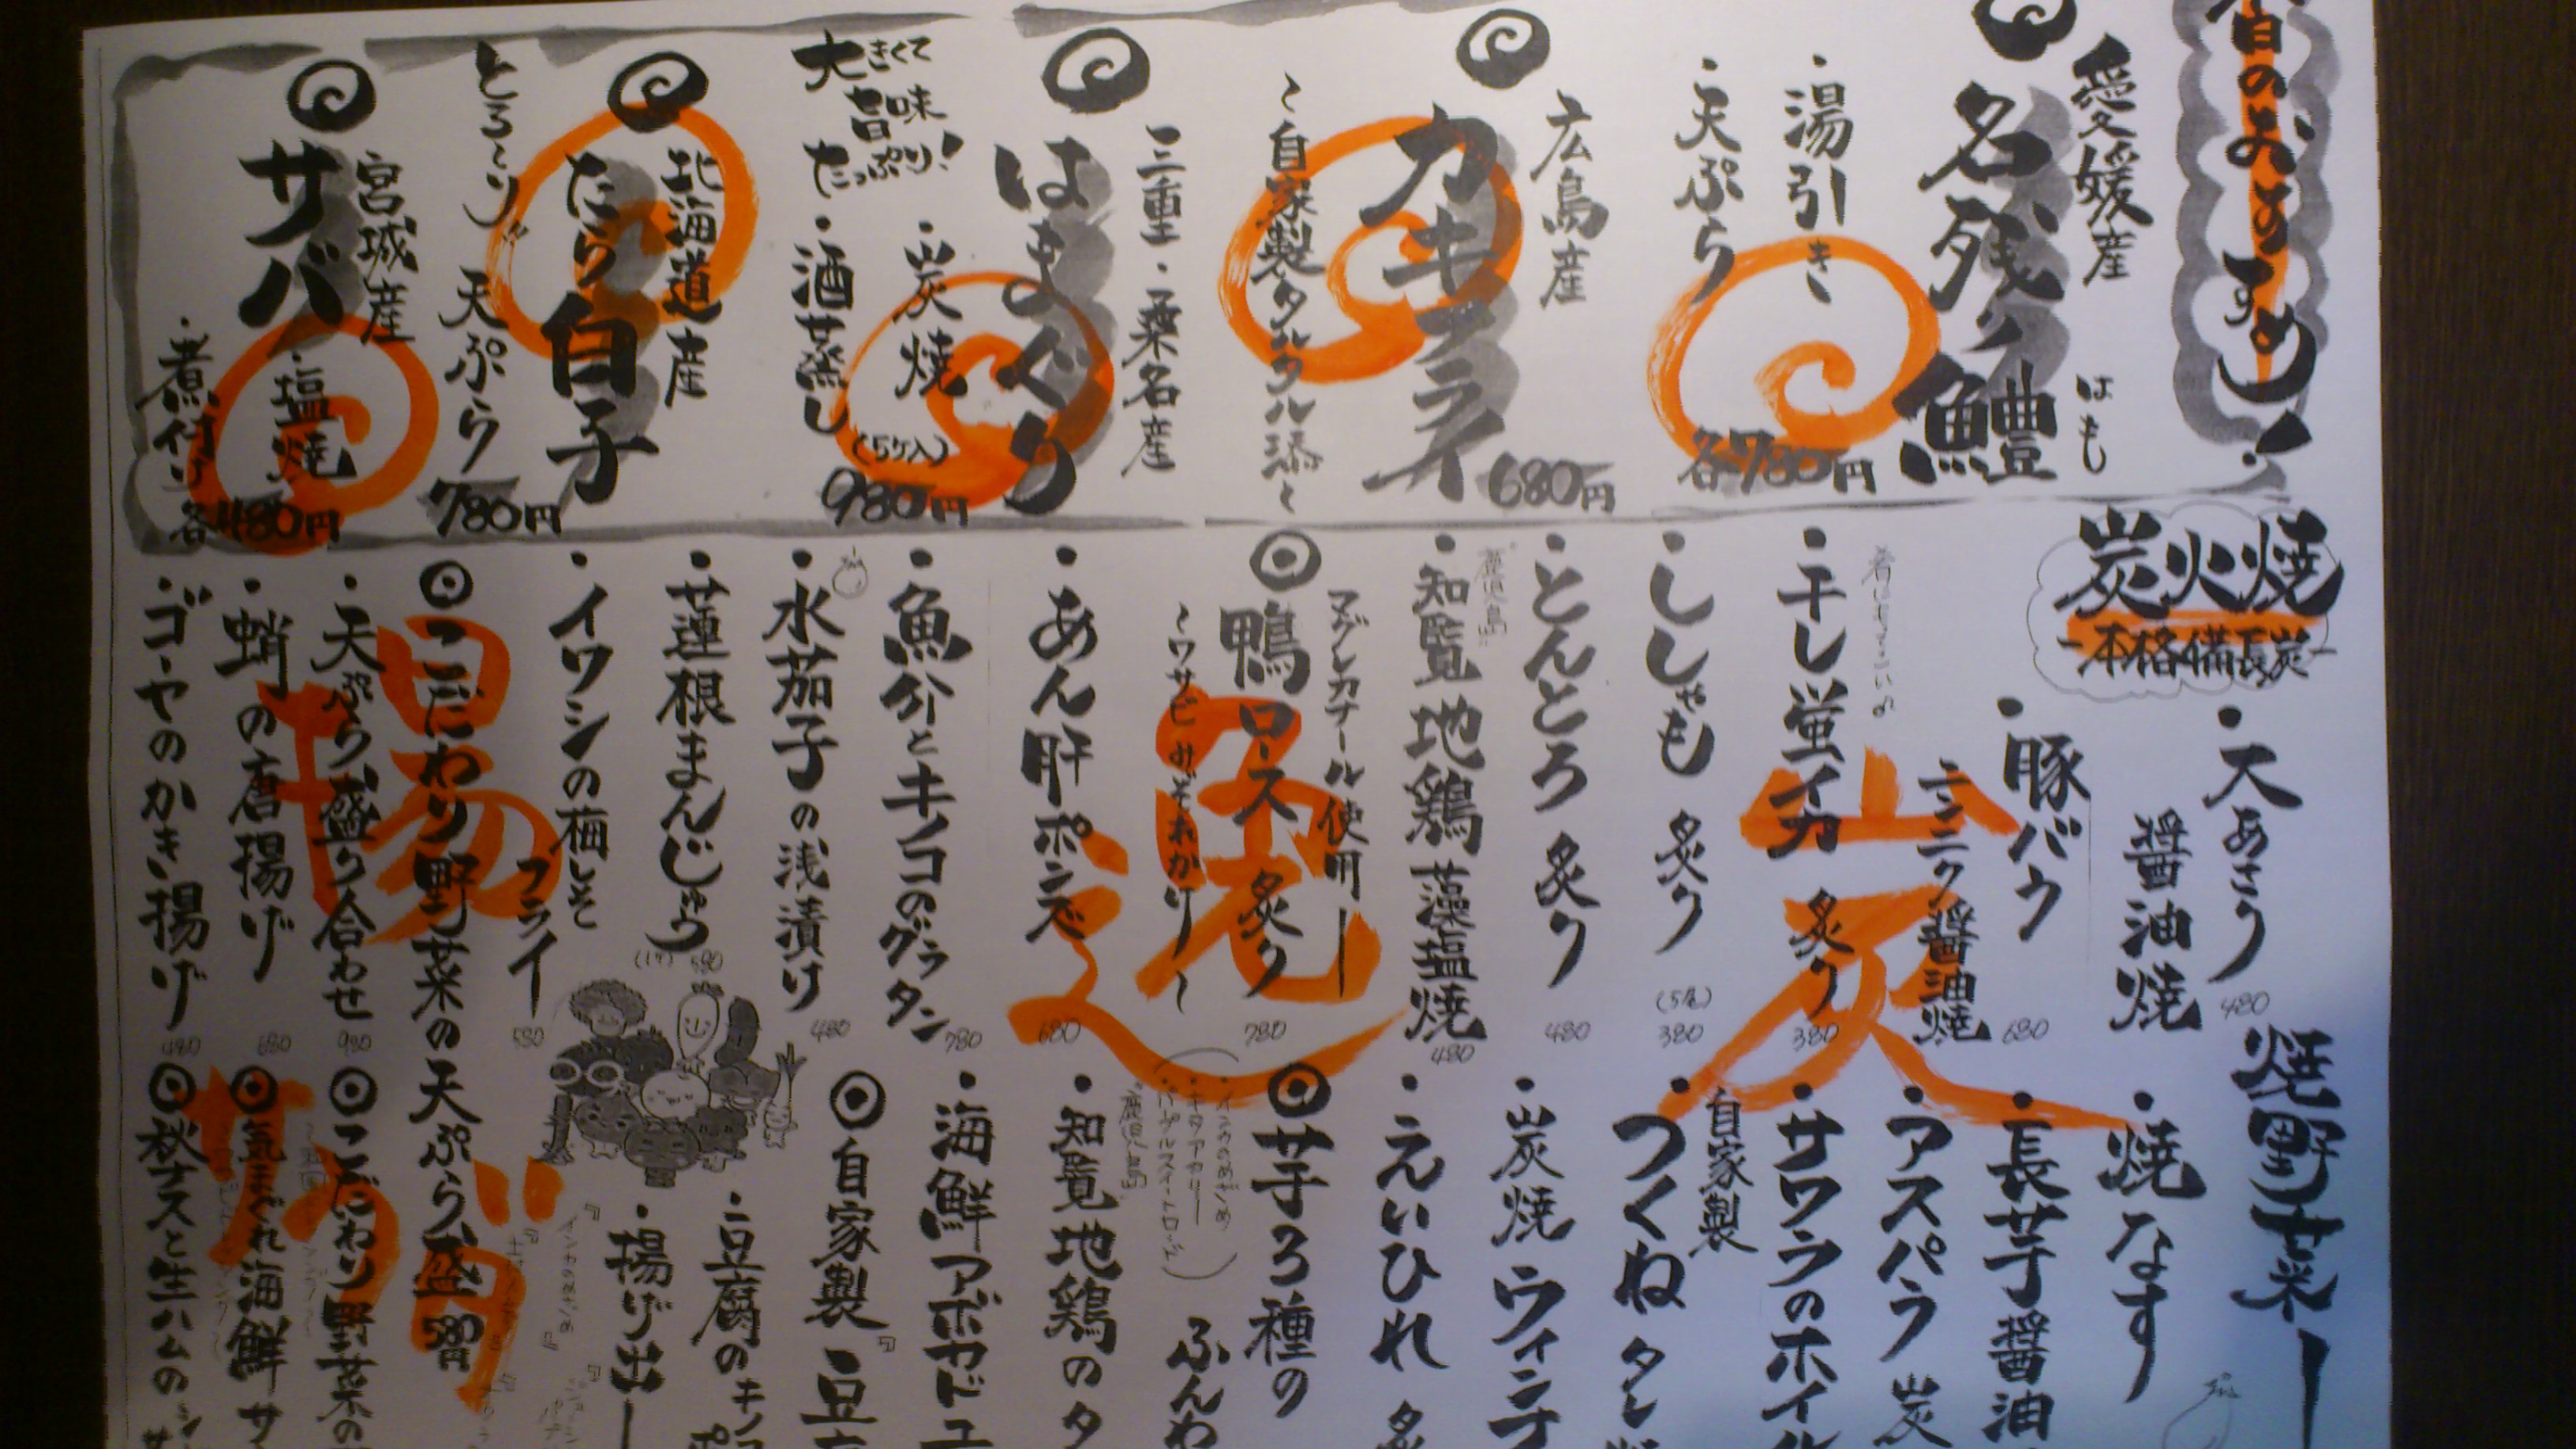 日のおすすめ!
愛媛産
名残り鱧
はも
・湯引き
・天ぷら
各780円
広島産
カキフライ
~自家製タルタル添え~
680円
三重・桑名産
はまぐり
・炭焼
・酒蒸し
大きくて
旨味
たっぷり!
(5ケ入)
980円
北海道産
たら白子
とろ~り
天ぷら
780円
宮城産
サバ
・塩焼
・煮付け
各480円
炭火焼
-本格備長炭-
炭
・大あさり
醤油焼
480
・豚バラ
ニンニク醤油焼
680
・干し蛍イカ 炙り
380
・ししゃも 炙り
(5尾)
380
・とんとろ 炙り
480
・知覧地鶏 藻塩焼
鹿児島
480
逸
マグレカナール使用
◎鴨ロース 炙り
~ワサビみぞれがけ~
780
・あん肝ポン酢
680
・魚介とキノコのグラタン
780
・水茄子の浅漬け
480
・蓮根まんじゅう
(1ケ) 580
揚げ
・イワシの梅しそ
フライ
580
◎こだわり野菜の天ぷら盛 580円
・天ぷら盛り合わせ
980
・蛸の唐揚げ
680
・ゴーヤのかき揚げ
480
焼野菜
・焼なす
・長芋醤油
・アスパラ 炭
・サワラのホイル
自家製
・つくね タレ
・炭焼ウィンナ
・えいひれ 炙
◎芋3種の
ふんわ
・知覧地鶏のタ
鹿児島
・海鮮アボカドユ
◎自家製
・豆
・豆腐のキノコ
・揚げ出し
サラダ
◎こだわり野菜の
◎気まぐれ海鮮サ
◎秋ナスと生ハムの